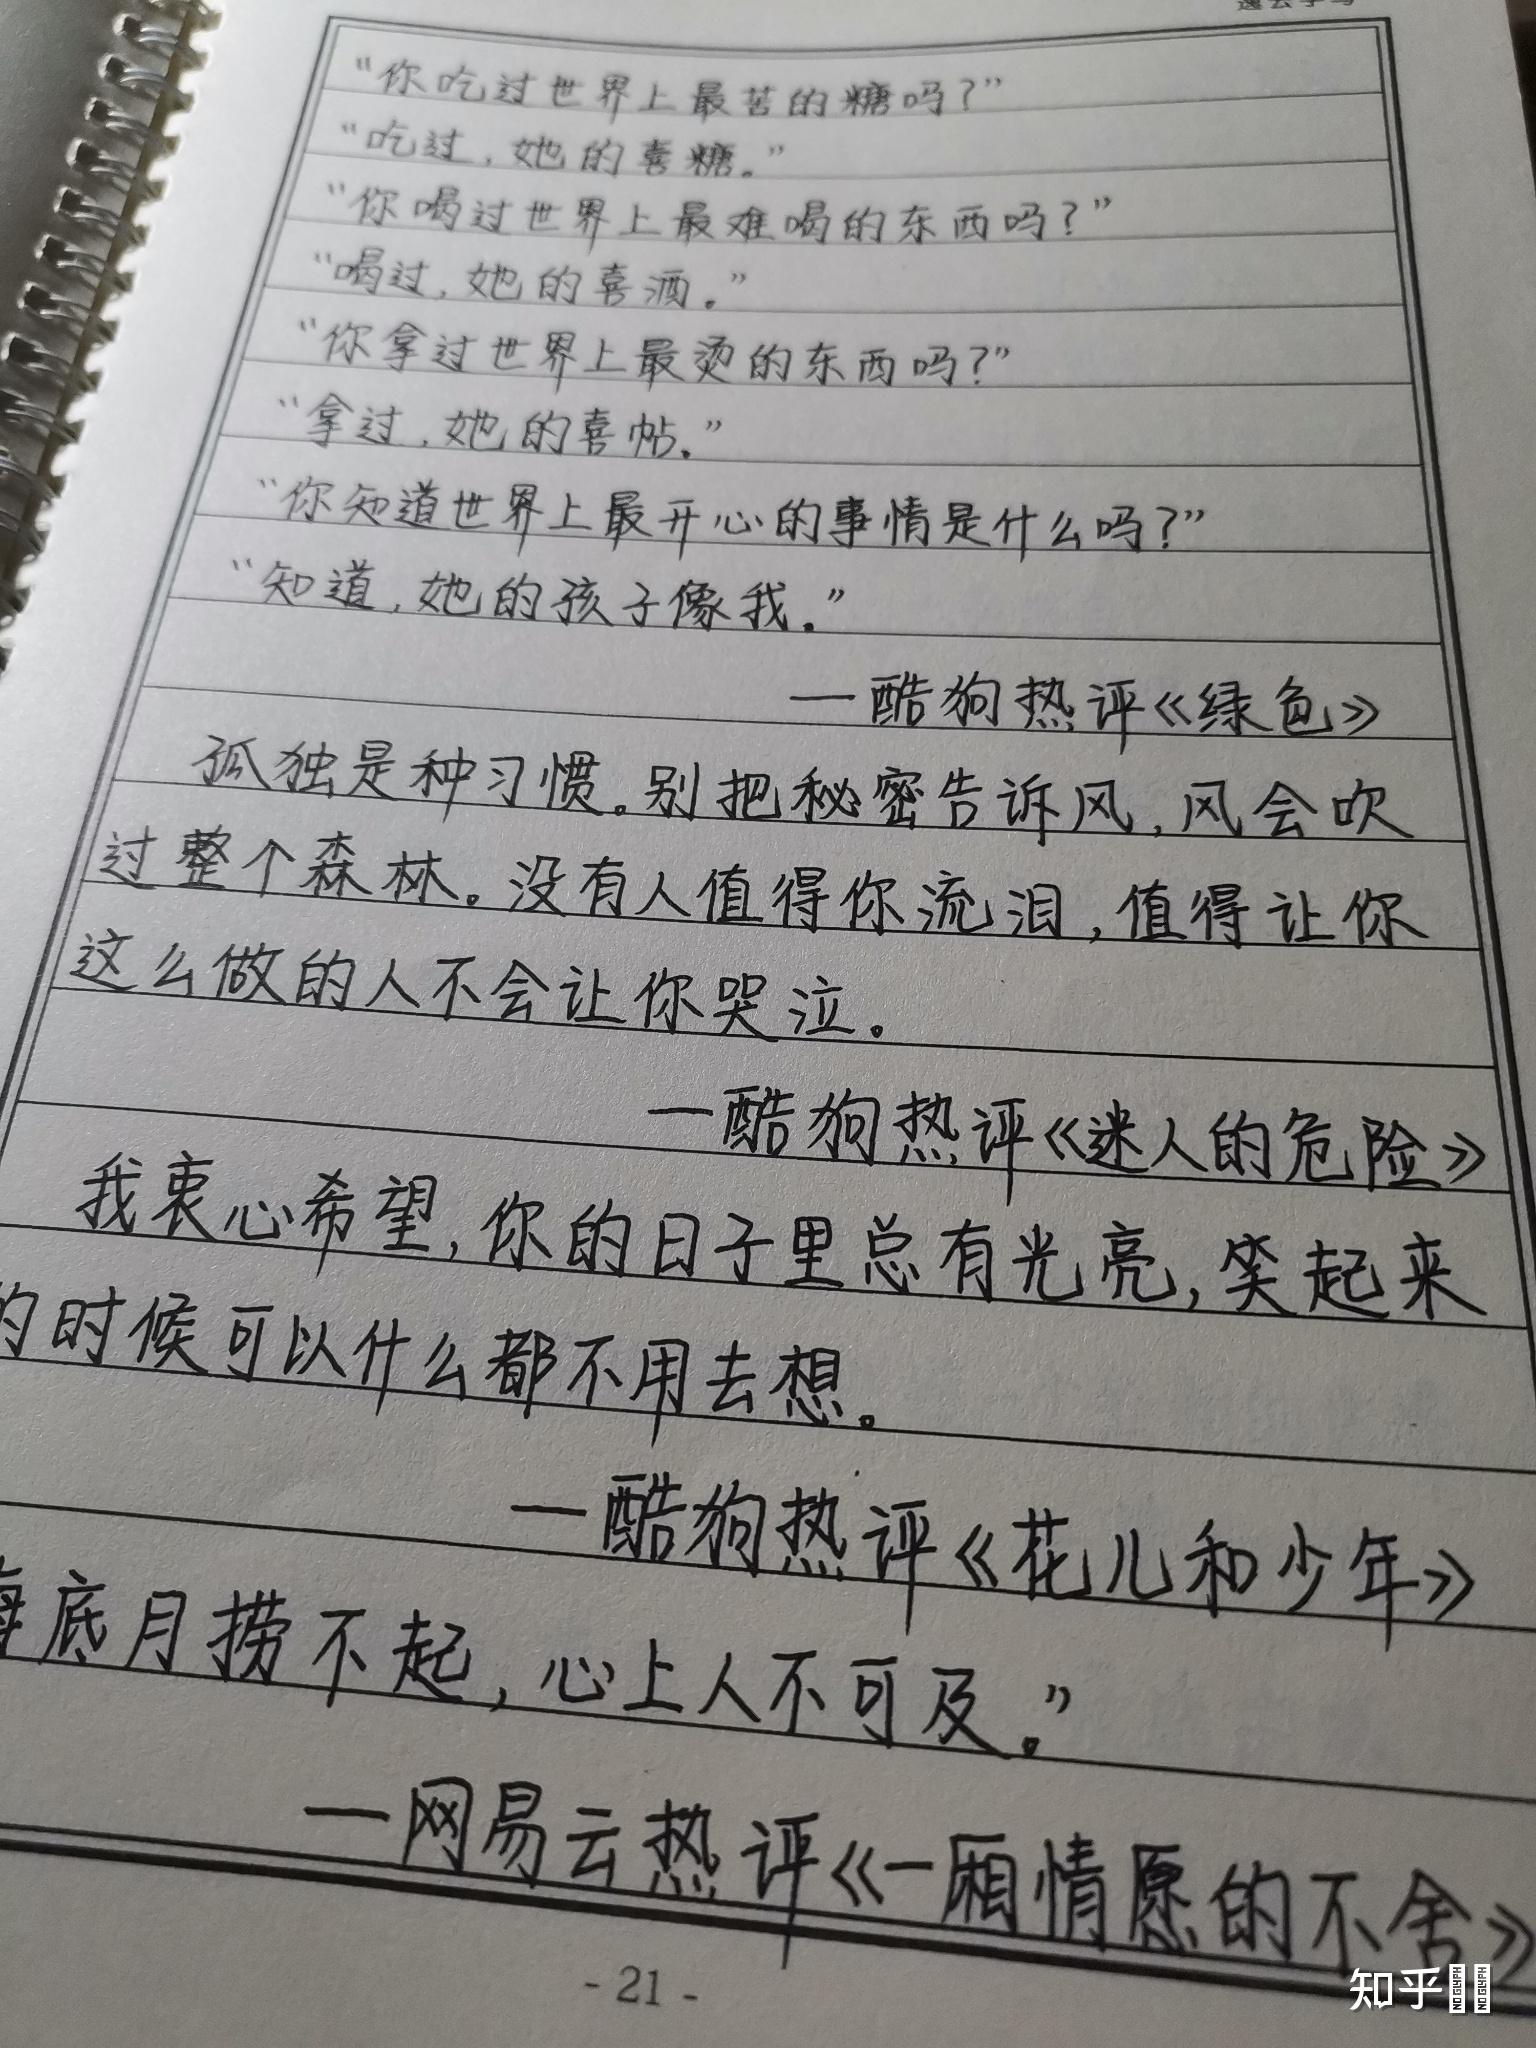 “你吃过世界上最苦的糖吗？”
“吃过，她的喜糖。”
“你喝过世界上最难喝的东西吗？”
“喝过，她的喜酒。”
“你拿过世界上最烫的东西吗？”
“拿过，她的喜帖。”
“你知道世界上最开心的事情是什么吗？”
“知道，她的孩子像我。”
—酷狗热评《绿色》
孤独是种习惯。别把秘密告诉风，风会吹
过整个森林。没有人值得你流泪，值得让你
这么做的人不会让你哭泣。
—酷狗热评《迷人的危险》
我衷心希望，你的日子里总有光亮，笑起来
的时候可以什么都不用去想。
—酷狗热评《花儿和少年》
海底月捞不起，心上人不可及。”
—网易云热评《一厢情愿的不舍》
- 21 -
知乎